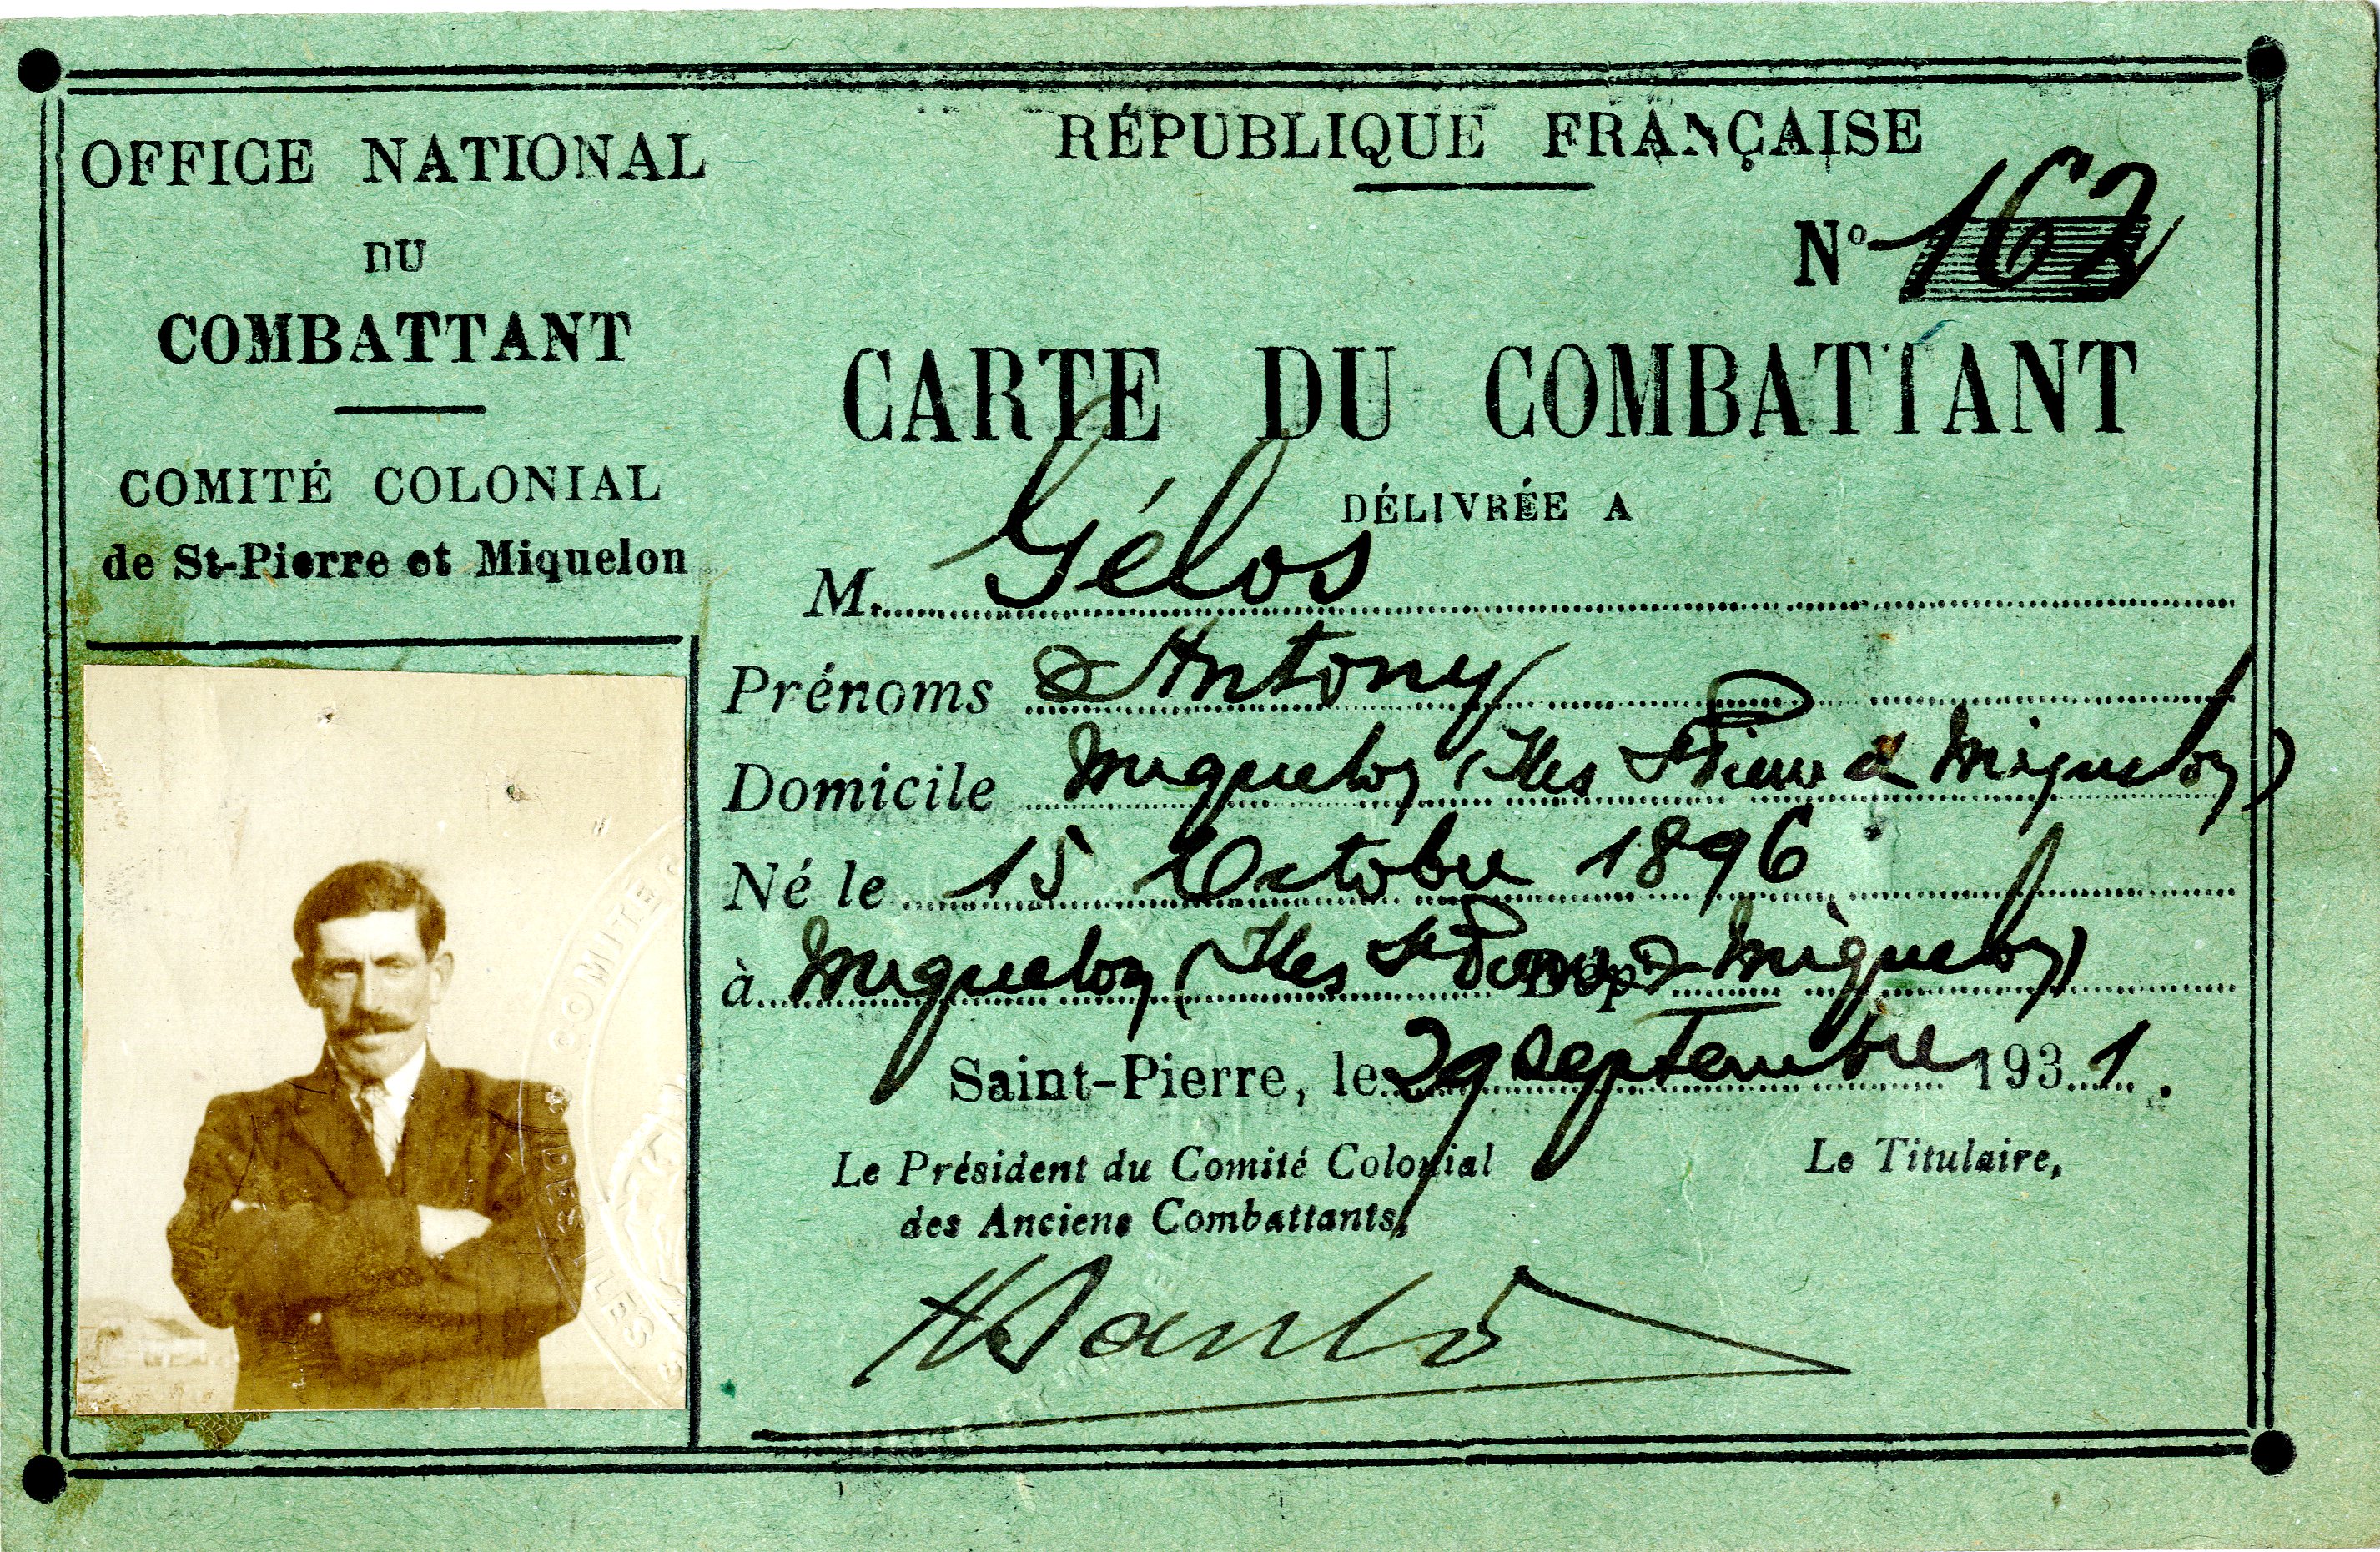 OFFICE NATIONAL
DU
COMBATTANT
COMITÉ COLONIAL
de St-Pierre et Miquelon
RÉPUBLIQUE FRANÇAISE
Nº 162
CARTE DU COMBATTANT
DÉLIVRÉE A
M. Gélos
Prénoms Antony
Domicile Miquelon (Iles St Pierre & Miquelon)
Né le 15 Octobre 1896
à Miquelon (Iles St Pierre Dépt & Miquelon)
Saint-Pierre, le 29 Septembre 1931.
Le Président du Comité Colonial
des Anciens Combattants,
Le Titulaire,
COMITE
DES ILES